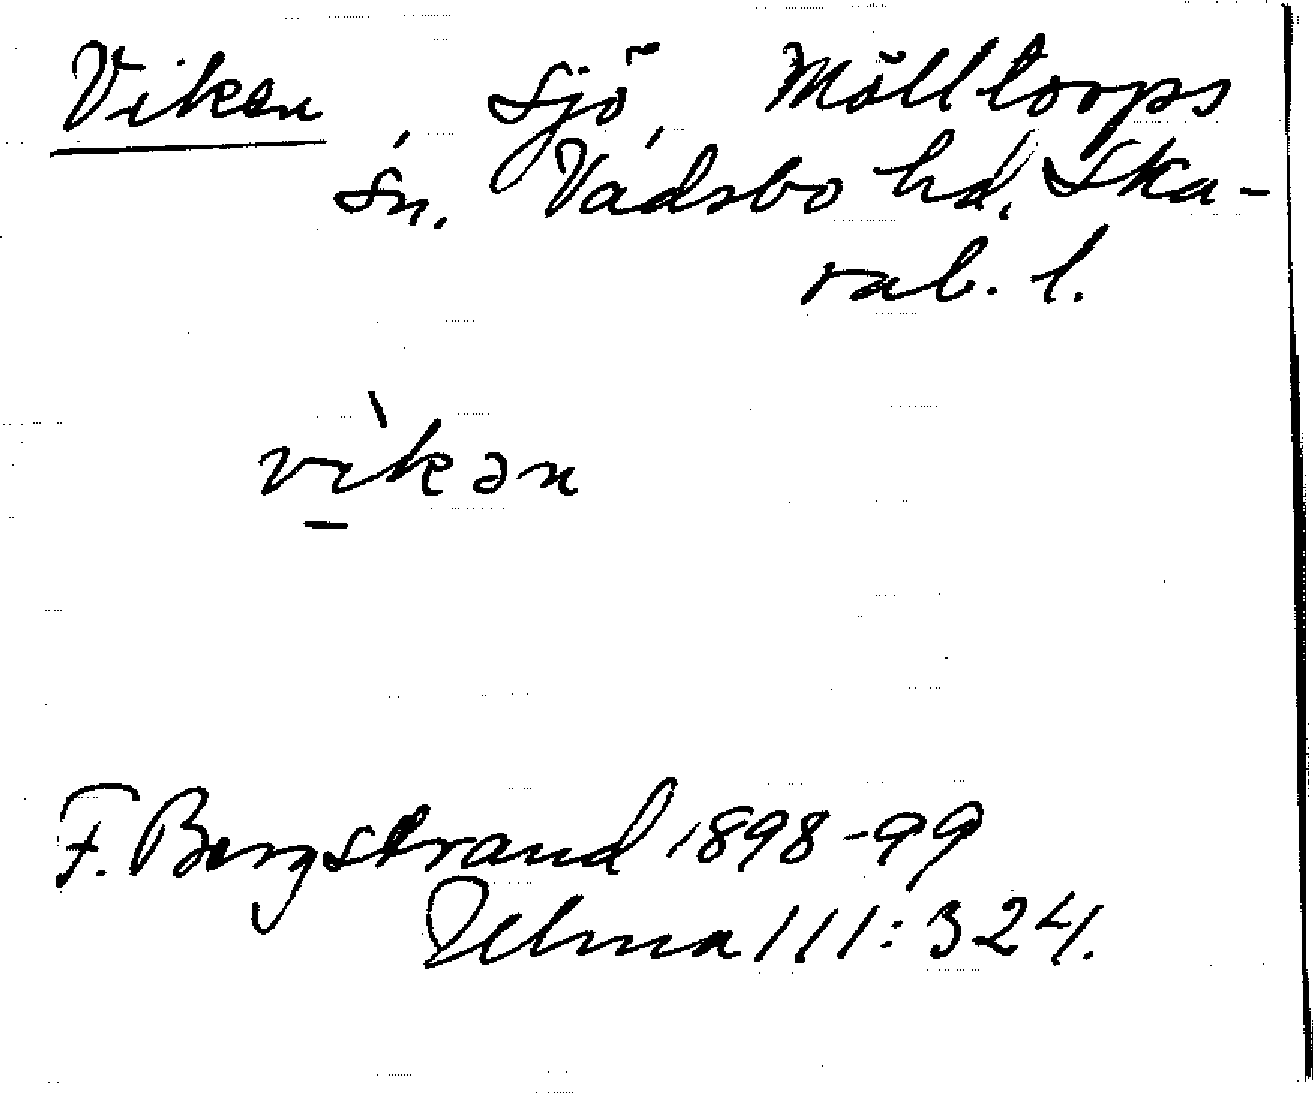 Viken, sjö, Mölltorps
sn. Vadsbo hd, Ska-
rab. l.
vìkən
F. Bergstrand 1898-99
Ulma 111:324.